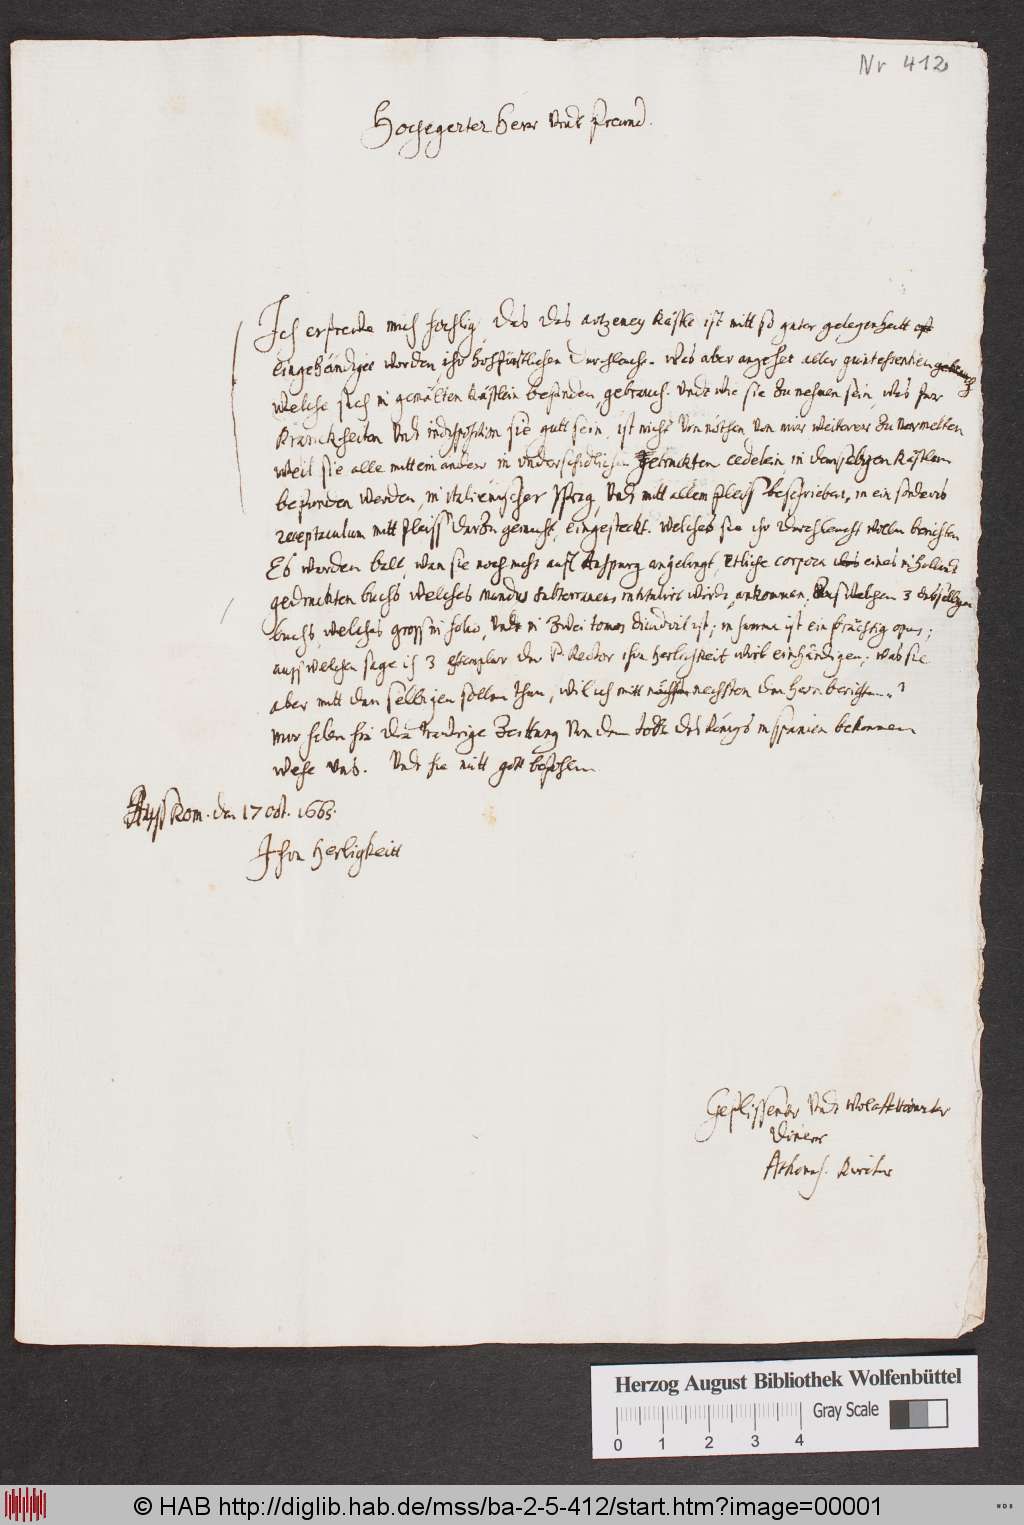 Nr 412
Hochgerter Herr Undt freund.
Ich erfrewe mich hochlig das das artzeney kästle ist mitt so guter gelegenheitt
eingehändiget worden ihr hochfürstlichen Durchleucht. was aber angehet aller quintessentien gebrauch
welche sich in gemälten kästlein befinden, gebrauch. Undt wie sie zu nehmen sein, was fur
kranckheiten Undt indisposition sie gutt sein, ist nicht Vonnöthen Von mir weiterer zu vermelten
weil sie alle mitt einander in underschidlichen getruckten cedelein in demselbigen kästlein
befunden werden, in italienischer sprag, Undt mitt allem fleiss beschrieben, in ein sonders
receptaculum mitt fleiss darzu gemacht, eingesteckt. welches sie ihr durchleucht wollen berichten
Es werden balt, wan sie noch nicht auss Augspurg angelangt, etliche corpora eines in Holand
gedruckten buchs welches mundus subterraneus intitulirt wirdt, ankommen, Auss welchen 3 dessselbigen
buchs, welches gross in folio, Undt in zwei tomos dividirt ist; in summa ist ein prächtig opus;
auss welchen sage ich 3 exemplar der P. Rector ihrn herlichkeit wirt einhändigen; was sie
aber mitt den selbigen sollen thun, wil ich mitt nechsten den herrn berichten.
Mir haben hie die traurige Zeittung Von dem todt des königs in spanien bekommen
wehe Uns. Undt hie mitt gott befohlen
Auss Rom. den 17 oct. 1665.
Ihrn Herligkeitt
Geflissener Undt
Diener
Athanas. Kircher
Herzog August Bibliothek Wolfenbüttel
Gray Scale
0 1 2 3 4
© HAB http://diglib.hab.de/mss/ba-2-5-412/start.htm?image=00001
WDB